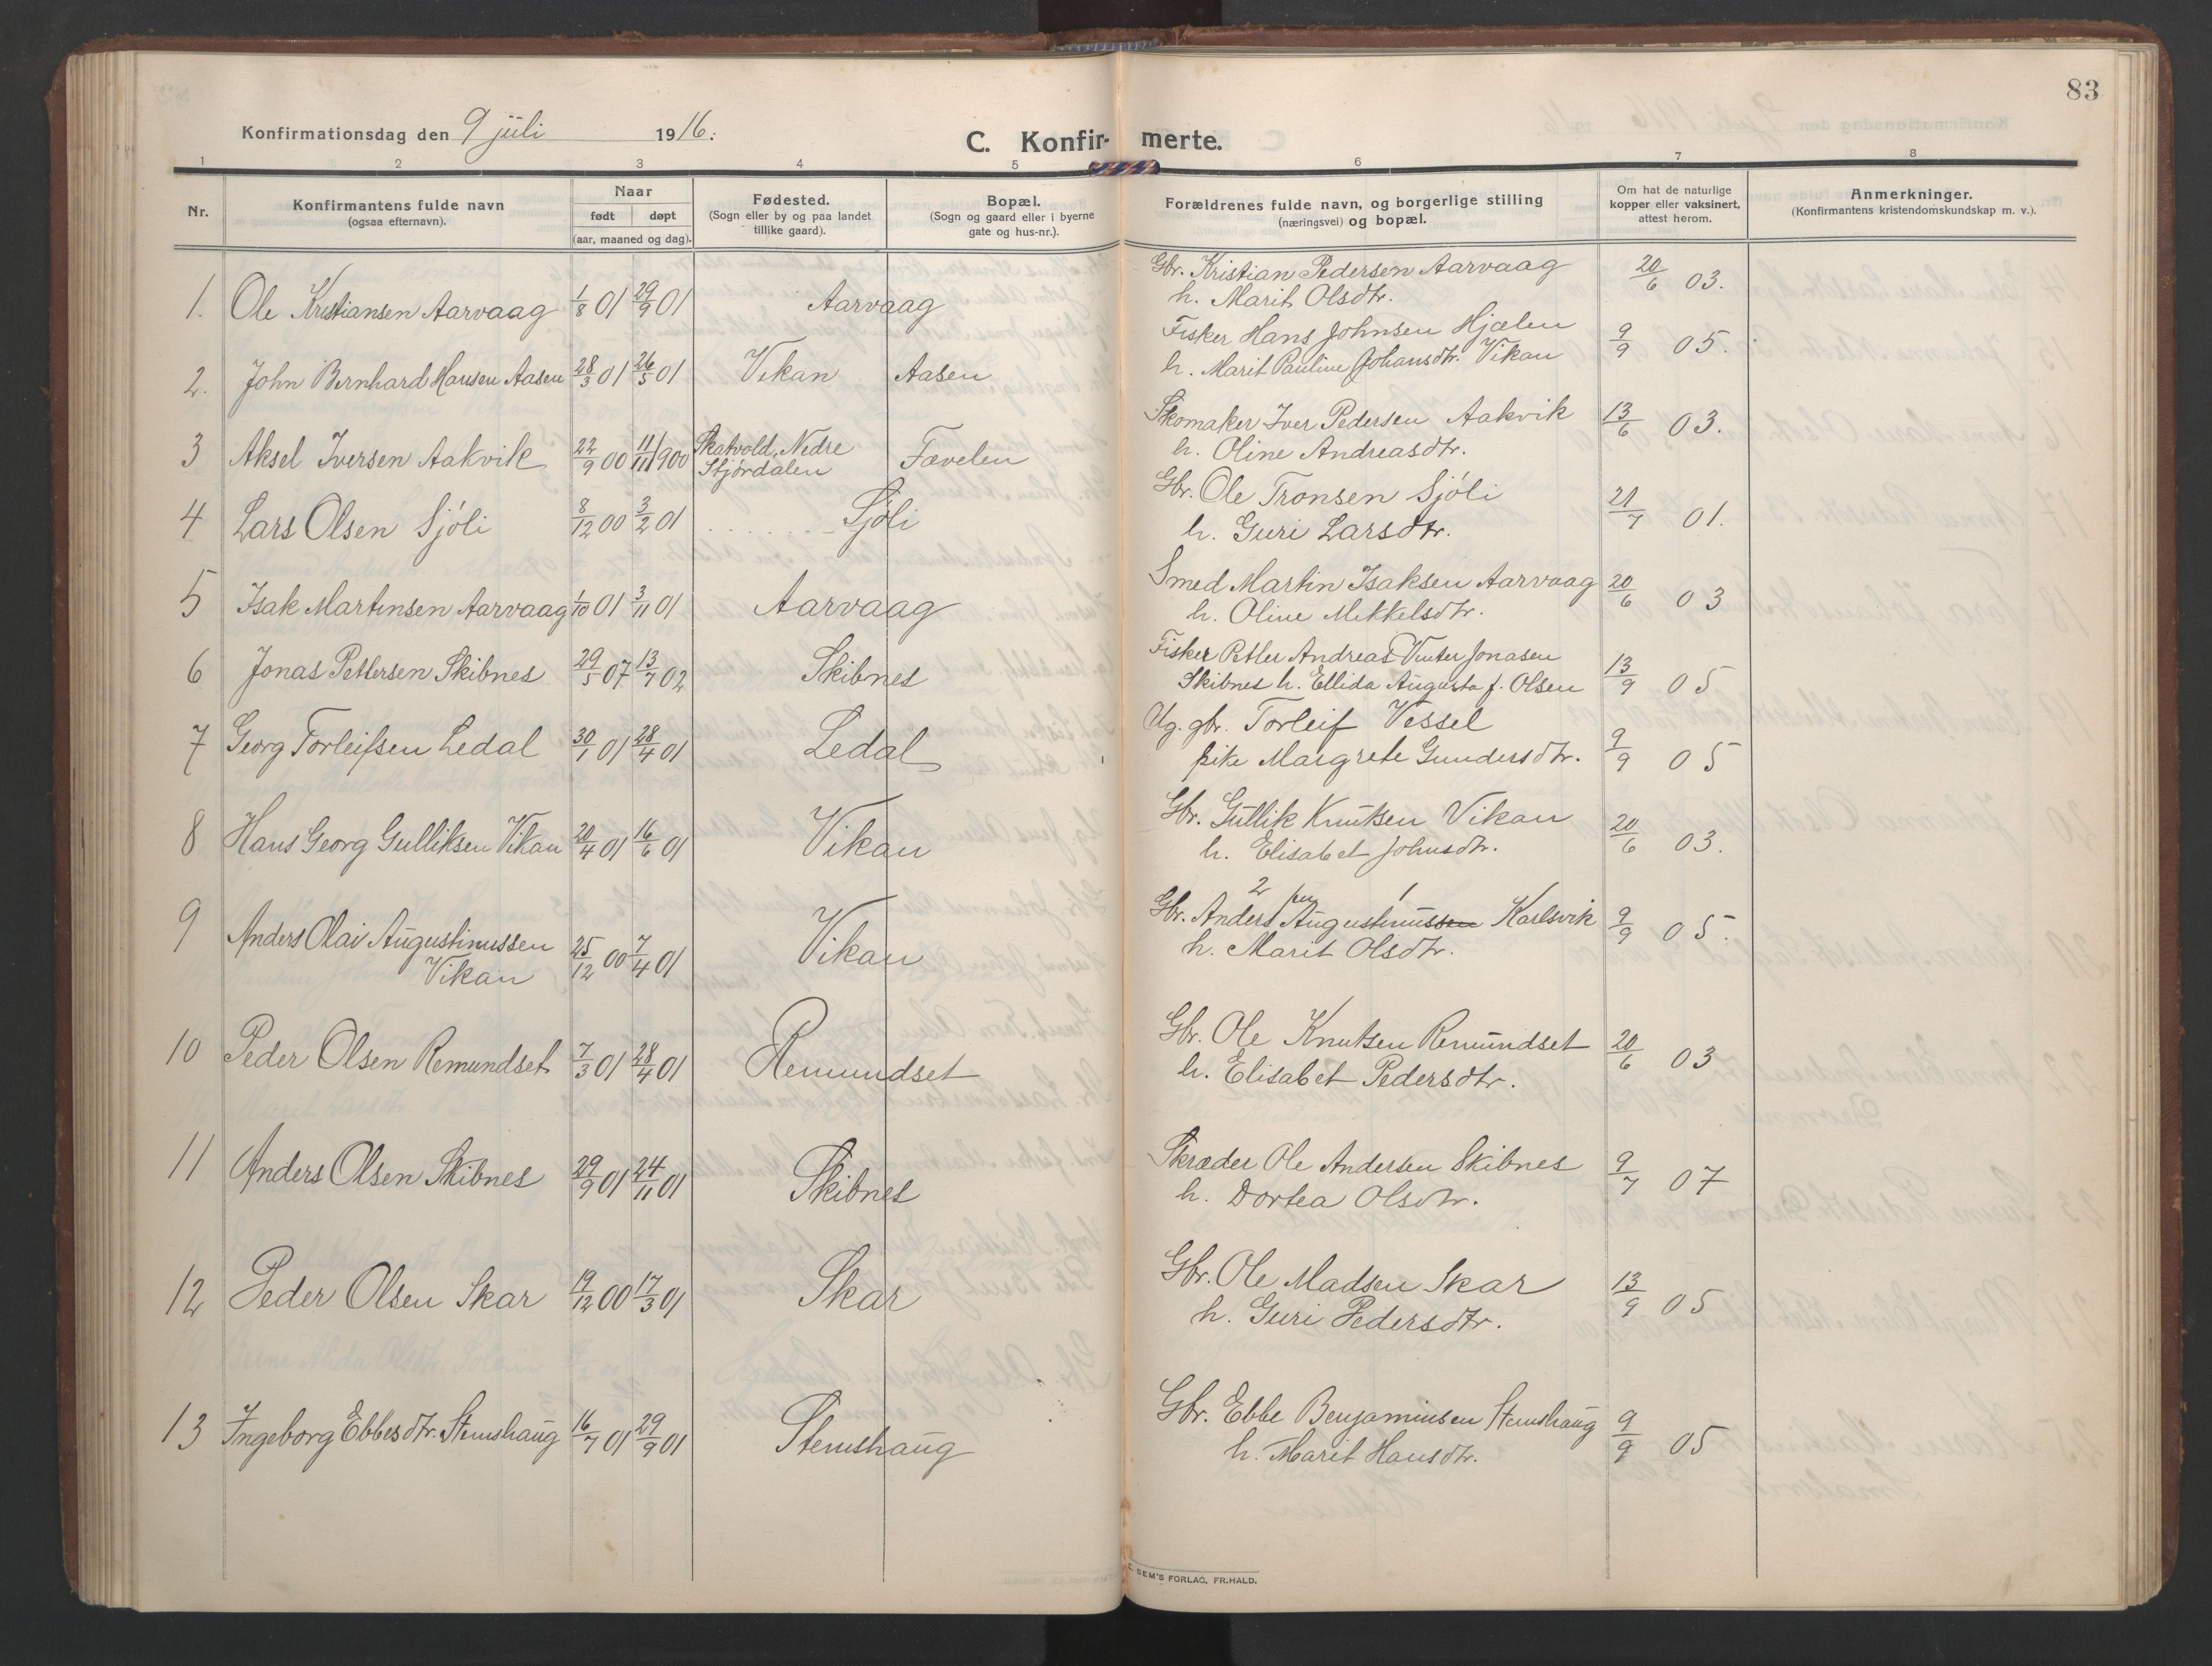 83
Konfirmationsdag den 9 juli 1916:
C. Konfir- merte.
1 2 3 4 5 6 7 8
Nr.
Konfirmantens fulde navn
(ogsaa efternavn).
Naar
født døpt
(aar, maaned og dag).
Fødested.
(Sogn eller by og paa landet
tillike gaard).
Bopæl.
(Sogn og gaard eller i byerne
gate og hus-nr.).
Forældrenes fulde navn, og borgerlige stilling
(næringsvei) og bopæl.
Om hat de naturlige
kopper eller vaksinert,
attest herom.
Anmerkninger.
(Konfirmantens kristendomskundskap m. v.).
1. Ole Kristiansen Aarvaag 1/8 01 29/9 01 Aarvaag
Gbr. Kristian Pedersen Aarvaag 20/6 03.
h. Marit Olsdtr.
2. John Bernhard Hansen Aasen 28/3 01 26/5 01 Vikan Aasen
Fisker Hans Johnsen Hjælen 9/9 05.
h. Marit Pauline Johansdtr. Vikan
3 Aksel Iversen Aakvik 22/9 00 11/11 1900 Skatvold, Nedre
Stjørdalen Fævelen
Skomaker Iver Pedersen Aakvik 13/6 03.
h. Oline Andreasdtr.
4 Lars Olsen Sjøli 8/12 00 3/2 01 Sjøli
Gbr. Ole Tronsen Sjöli 21/7 01.
h. Guri Larsdtr.
5 Isak Martinsen Aarvaag 1/10 01 3/11 01 Aarvaag
Smed Martin Isaksen Aarvaag 20/6 03
h. Oline Mikkelsdtr.
6 Jonas Pettersen Skibnes 29/5 07 13/7 02 Skibnes
Fisker Petter Andreas Vinter Jonasen 13/9 05
Skibnes h. Ellida Augusta f. Olsen
7 Georg Torleifsen Ledal 30/1 01 28/4 01 Ledal
Ug. gbr. Torleif Vessel 9/9 05
pike Margrete Gundersdtr.
8 Hans Georg Gulliksen Vikan 20/4 01 16/6 01 Vikan
Gbr. Gullik Knutsen Vikan 20/6 03.
h. Elisabet Johnsdtr.
9 Anders Olai Augustinussen
Vikan 25/12 00 7/4 01 Vikan
2 1
Gbr. Anders Augustinussen Karlsvik 9/9 05.
h. Marit Olsdtr.
10 Peder Olsen Remundset 7/3 01 28/4 01 Remundset
Gbr. Ole Knutsen Remundset 20/6 03
h. Elisabet Pedersdtr.
11 Anders Olsen Skibnes 29/9 01 24/11 01 Skibnes
Skræder Ole Andersen Skibnes 9/7 07
h. Dortea Olsdtr.
12 Peder Olsen Skar 19/12 00 17/3 01 Skar
Gbr. Ole Madsen Skar 13/9 05
h. Guri Pedersdtr.
13 Ingeborg Ebbesdtr. Stemshaug 16/7 01 29/9 01 Stemshaug
Gbr. Ebbe Benjaminsen Stemshaug 9/9 05
h. Marit Hansdtr.
SEM'S FORLAG, FR.HALD.